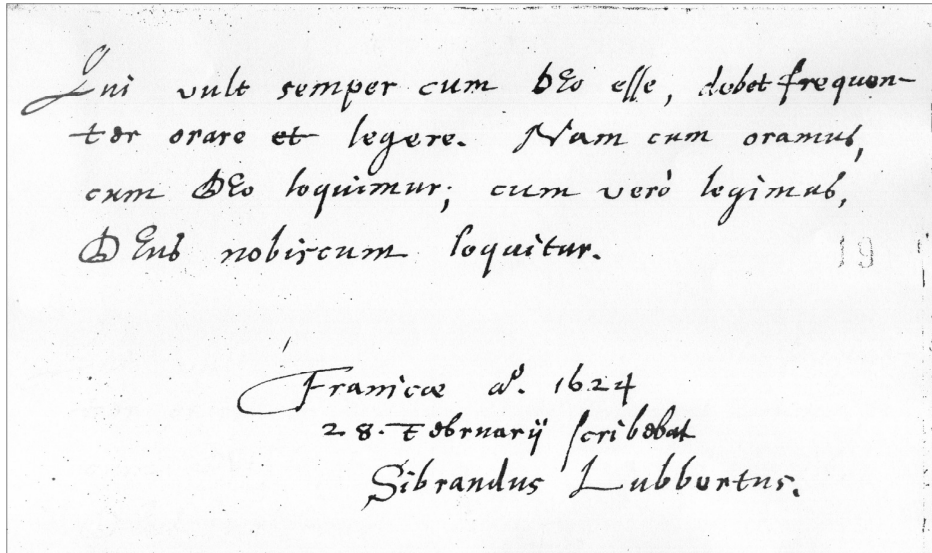 Qui vult semper cum DEo esse, debet frequen-
ter orare et legere. Nam cum oramus,
cum DEo loquimur; cum verò legimus,
DEus nobiscum loquitur.
19
Franicæ aº. 1624
28. Februarij scribebat
Sibrandus Lubbertus.